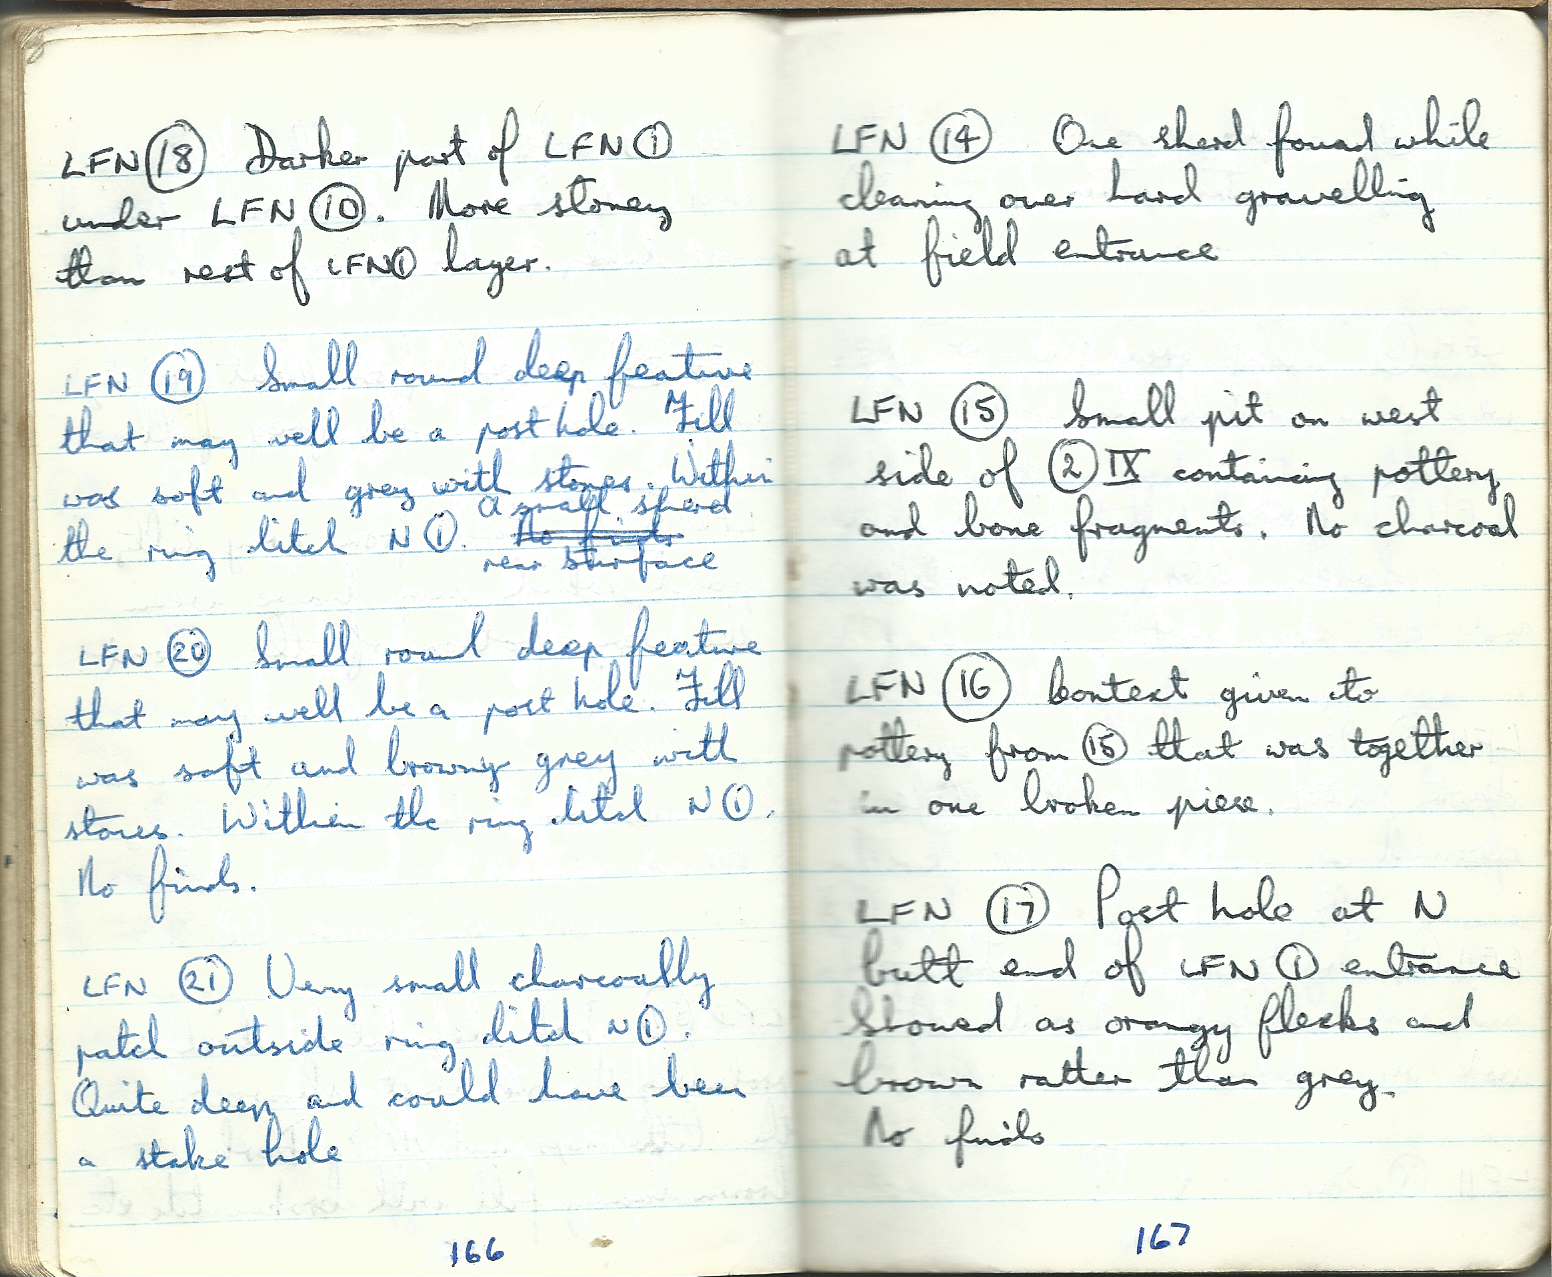 LFN (18) Darker part of LFN (1)
under LFN (10). More stoney
than rest of LFN (1) layer.
LFN (19) Small round deep feature
that may well be a post hole. Fill
was soft and grey with stones. Within
a small sherd
the ring ditch N (1). No finds
near surface
LFN (20) Small round deep feature
that may well be a post hole. Fill
was soft and browny grey with
stones. Within the ring ditch N (1).
No finds.
LFN (21) Very small charcoally
patch outside ring ditch N (1).
Quite deep and could have been
a stake hole
166
LFN (14) One sherd found while
cleaning over hard gravelling
at field entrance
LFN (15) Small pit on west
side of (2) IX containing pottery
and bone fragments. No charcoal
was noted.
LFN (16) Context given to
pottery from (15) that was together
in one broken piece.
LFN (17) Post hole at N
butt end of LFN (1) entrance
Showed as orangy flecks and
brown rather than grey.
No finds
167